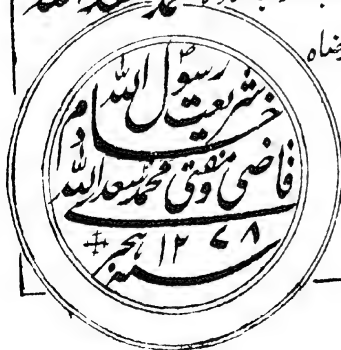 محمد سعد الله
ضاه
خادم شریعت رسول الله
قاضی و مفتی محمد سعد الله
سنه ۱۲۷۸ هجری